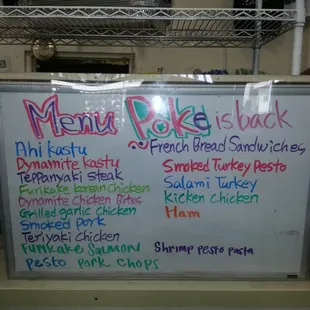 Menu Poke is back
French Bread Sandwiches
Ahi kastu
Dynamite kastu
Teppanyaki steak
Furikake korean chicken
Dynamite Chicken Bites
Grilled garlic chicken
Smoked pork
Teriyaki chicken
Furikake Salmon
pesto pork chops
Smoked Turkey Pesto
Salami Turkey
Kicken chicken
Ham
Shrimp pesto pasta